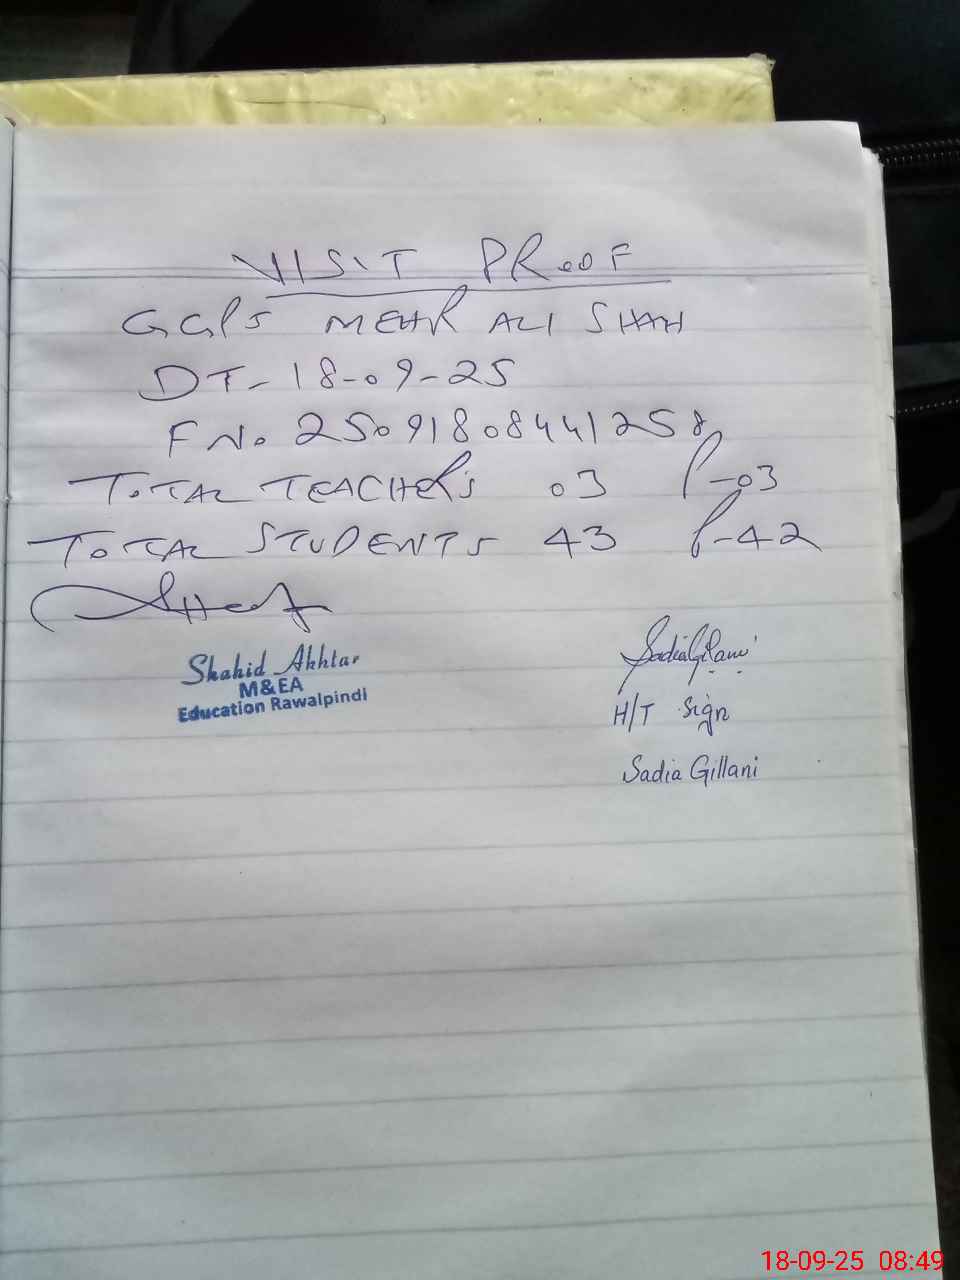 VISIT PROOF
GGPS MEHR ALI SHAH
DT- 18-09-25
F No. 25091808441258
TOTAL TEACHERS 03 P-03
TOTAL STUDENTS 43 P-42
Shahid Akhtar
M&EA
Education Rawalpindi
SadiaGillani
H/T Sign
Sadia Gillani
18-09-25 08:49